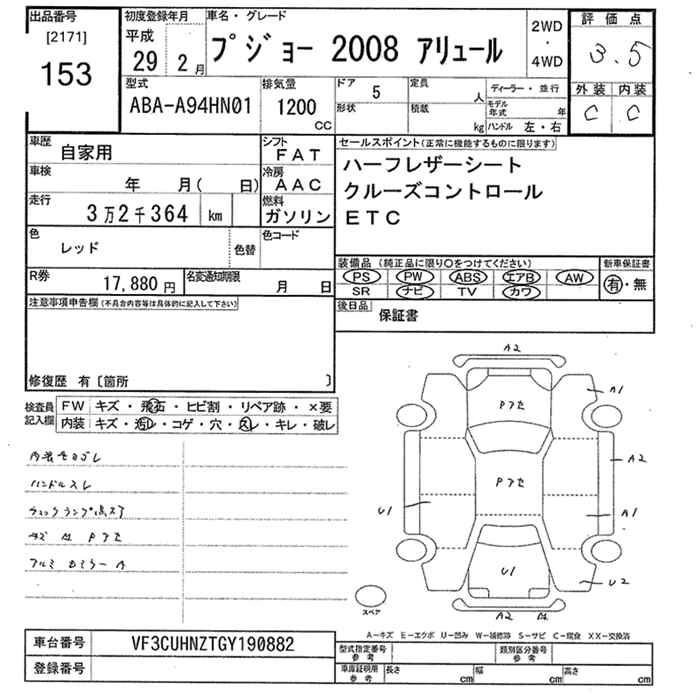 出品番号 [2171] 153
初度登録年月 平成 29 2 月
車名・グレード プジョー 2008 アリュール
2WD ・ 4WD
評価点 3.5
外装 内装
C C
型式 ABA-A94HN01
排気量 1200 CC
ドア 5
定員 人
形状
積載 kg
ディーラー・並行
モデル年式 年
ハンドル 左・右
車歴 自家用
シフト FAT
車検 年 月( 日)
冷房 AAC
走行 3万2千364 km
燃料 ガソリン
色 レッド
色替
色コード
R券 17,880 円
名変通知期限 月 日
セールスポイント(正常に機能するものに限ります)
ハーフレザーシート
クルーズコントロール
ETC
装備品 (純正品に限り○をつけてください)
PS PW ABS エアB AW
SR ナビ TV カワ
新車保証書
有・無
後日品 保証書
注意事項申告欄(不具合内容等は具体的に記入して下さい)
修復歴 有〔箇所 〕
検査員記入欄
FW キズ・飛石・ヒビ割・リペア跡・×要
内装 キズ・汚レ・コゲ・穴・スレ・キレ・破レ
ハンドルスレ
チェックランプ点灯
A2
A1
Pアセ
A2
Pアセ
U1
A1
U1
U2
A2 A2
スペア
A-キズ E-エクボ U-凹み W-補修跡 S-サビ C-腐食 XX-交換済
車台番号 VF3CUHNZTGY190882
登録番号
型式指定番号 参考
類別区分番号 参考
車庫証明用 参考 長さ cm 幅 cm 高さ cm